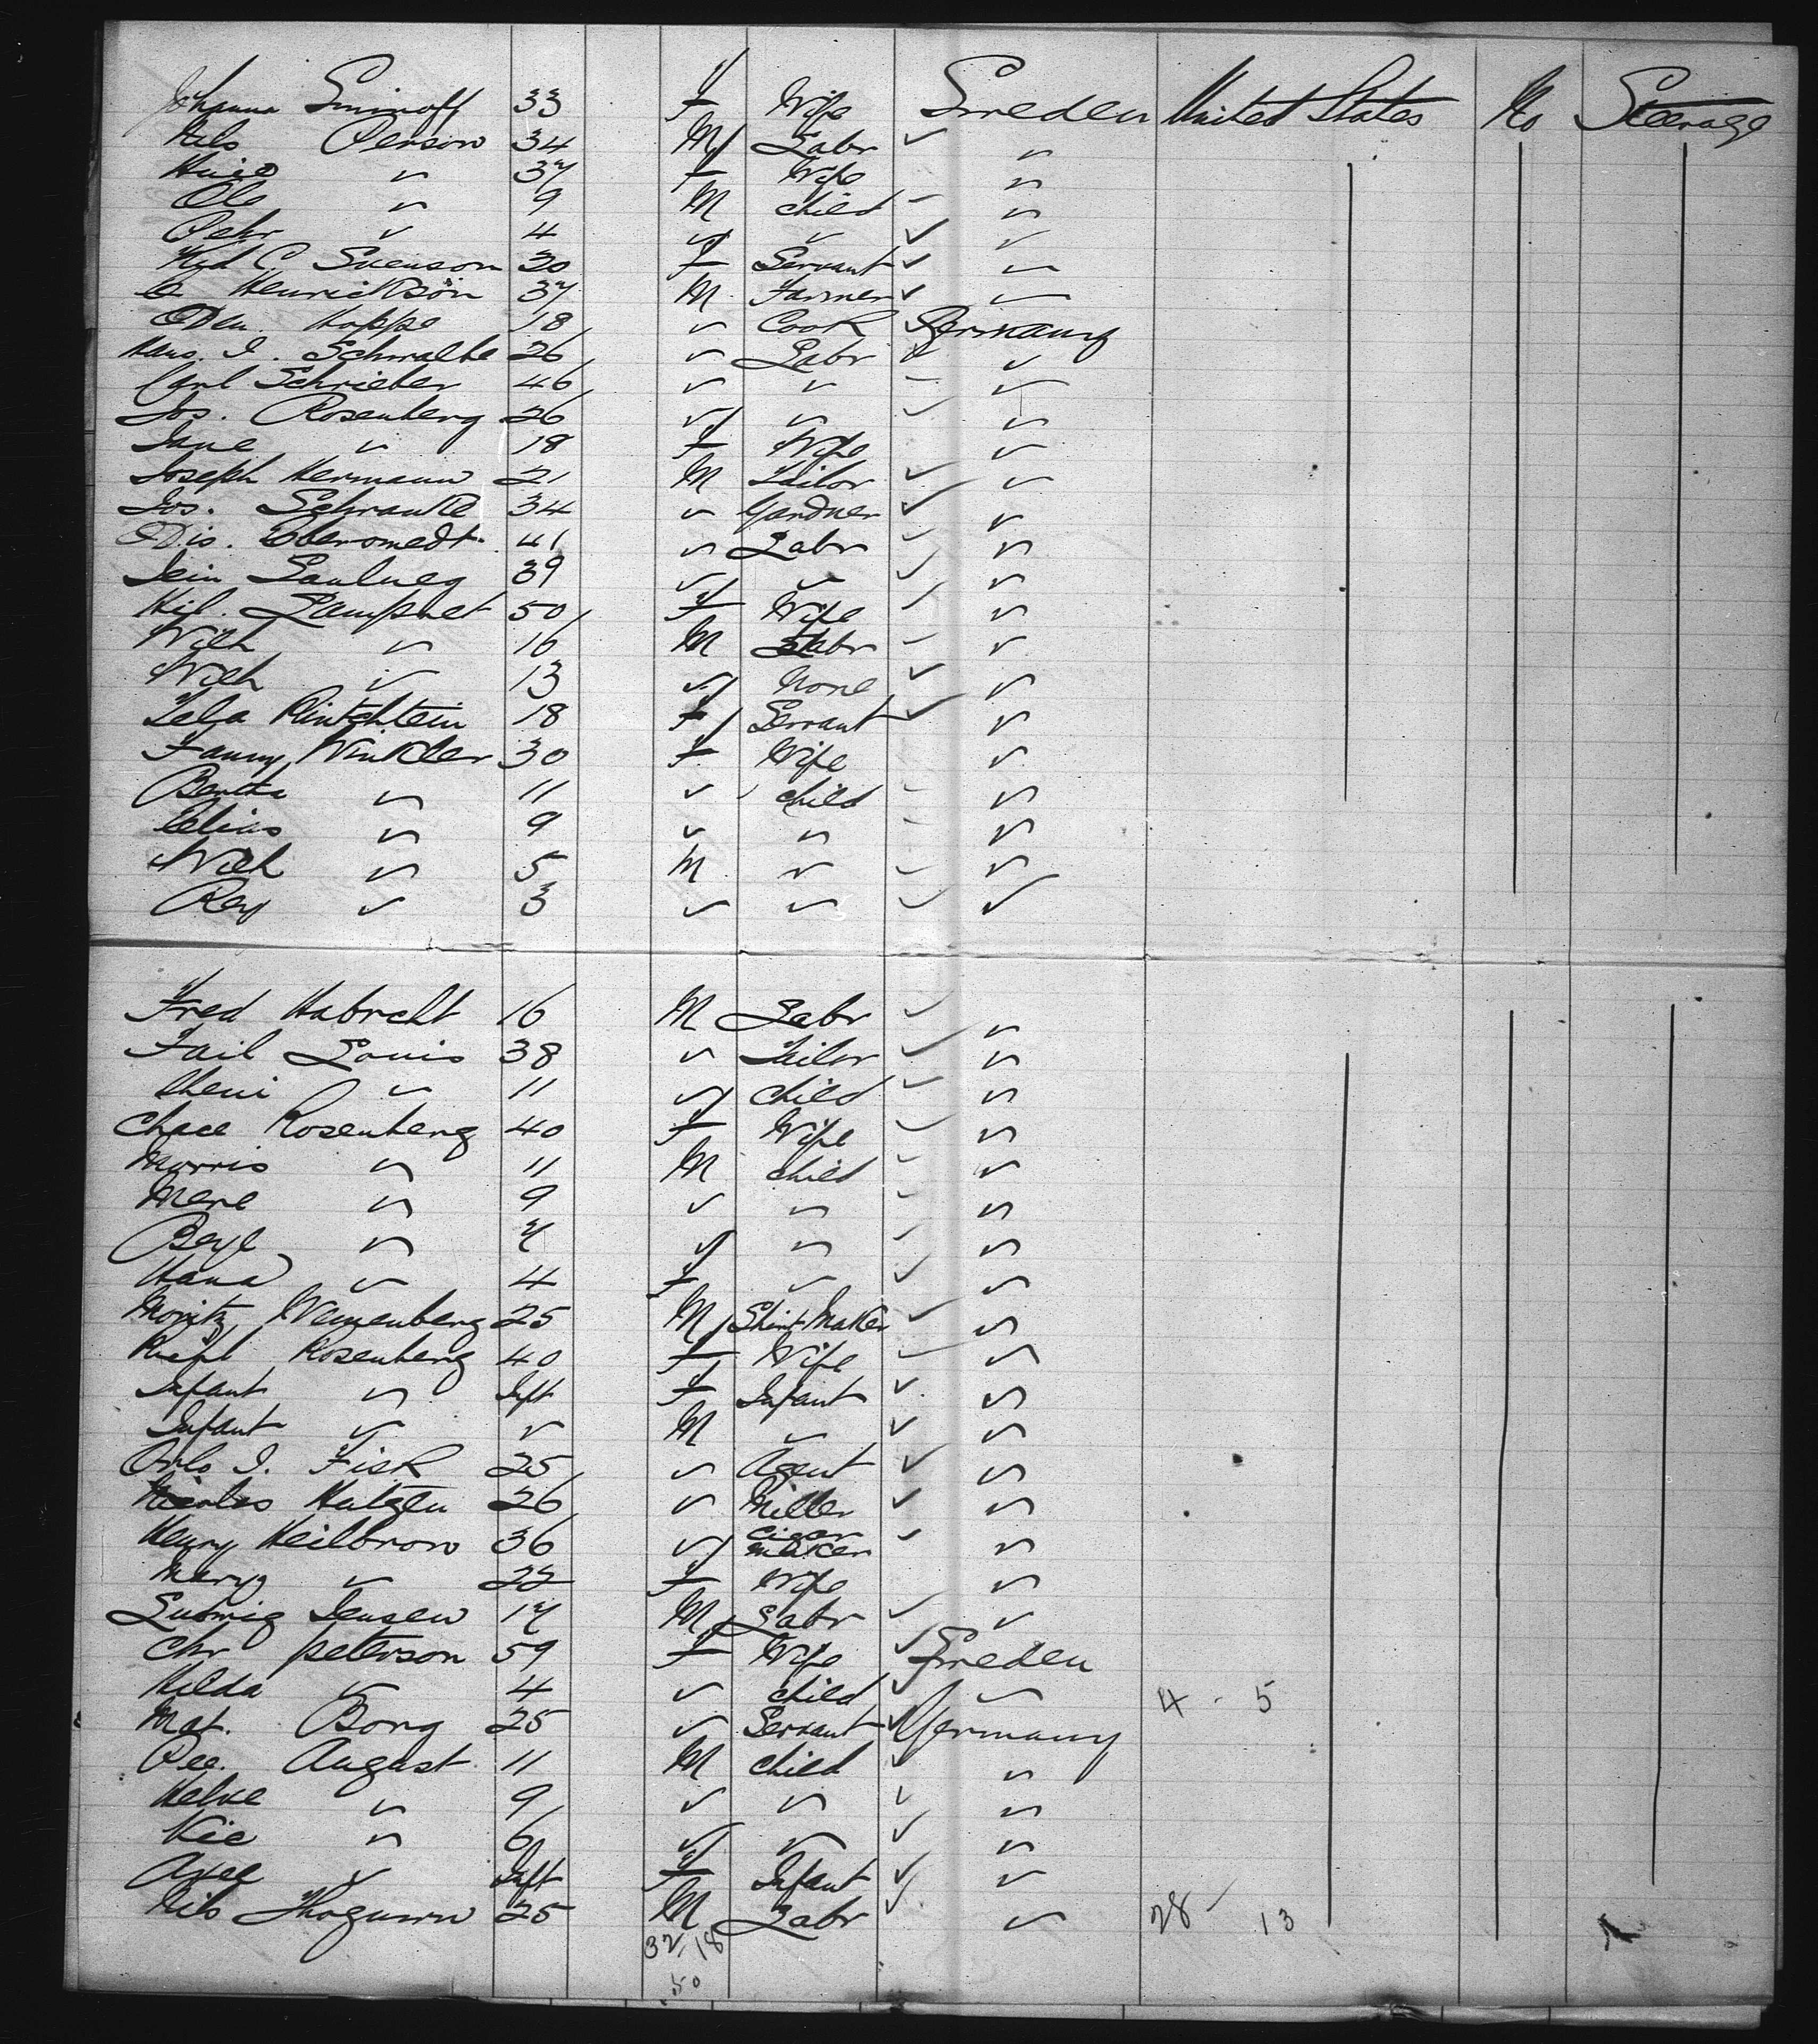 Johanna Smirnoff 33 F Wife Sweden United States No Steerage
Nils Person 34 M Labr ✓ "
" 37 F Wife "
Ole " 9 M child - "
Pehr " 4 " " ✓ "
C. Svenson 30 F Servant ✓ "
C Henrickson 37 M Farmer ✓ "
Hoppe 18 " Cook ✓ Germany
Hans. I. Schwalbe 26 " Labr ✓ "
Carl Schrieber 46 " " - "
Jos. Rosenberg 26 " " ✓ "
Jane " 18 F Wife "
Joseph Hermann 21 M Tailor ✓ "
Jos. Schranke 34 " Gardner ✓ "
41 " Labr - "
39 " " ✓ "
Lampnet 50 F Wife ✓ "
Wilh " 16 M Labr - "
Wilh " 13 " None ✓ "
18 F Servant ✓ "
Fanny Winkler 30 F Wife "
Bertha " 11 " child - "
Elias " 9 " " - "
Wilh " 5 M " - "
Rey " 3 " " ✓ "
Fred Habrcht 16 M Labr ✓ "
Fail Louis 38 " Tailor ✓ "
Cheni " 11 " child ✓ "
Chace Rosenberg 40 F Wife ✓ "
Morris " 11 M child - "
Mere " 9 " " - "
Beyl " 7 " " ✓ "
Hana " 4 F " ✓ "
Moritz 25 M Shirt Maker ✓ "
Rosenberg 40 F Wife - "
Infant " Inft F Infant ✓ "
Infant " " M " ✓ "
I. Fisk 25 " Agent ✓ "
Nicolas Hatzen 26 " Miller ✓ "
Henry Heilbron 36 " Cigar maker ✓ "
Mary " 22 F Wife "
Ludwig Jensen 17 M Labr ✓ "
Chr peterson 59 F Wife ✓ Sweden
Hilda " 4 " child ✓ " 4 - 5
Mat. Borg 25 " Servant ✓ Germany
August 11 M child ✓ "
" 9 " " ✓ "
" 6 " " ✓ "
Axel " Inft F Infant ✓ "
Nils 25 M Labr ✓ " 28 - 13
32/18
50